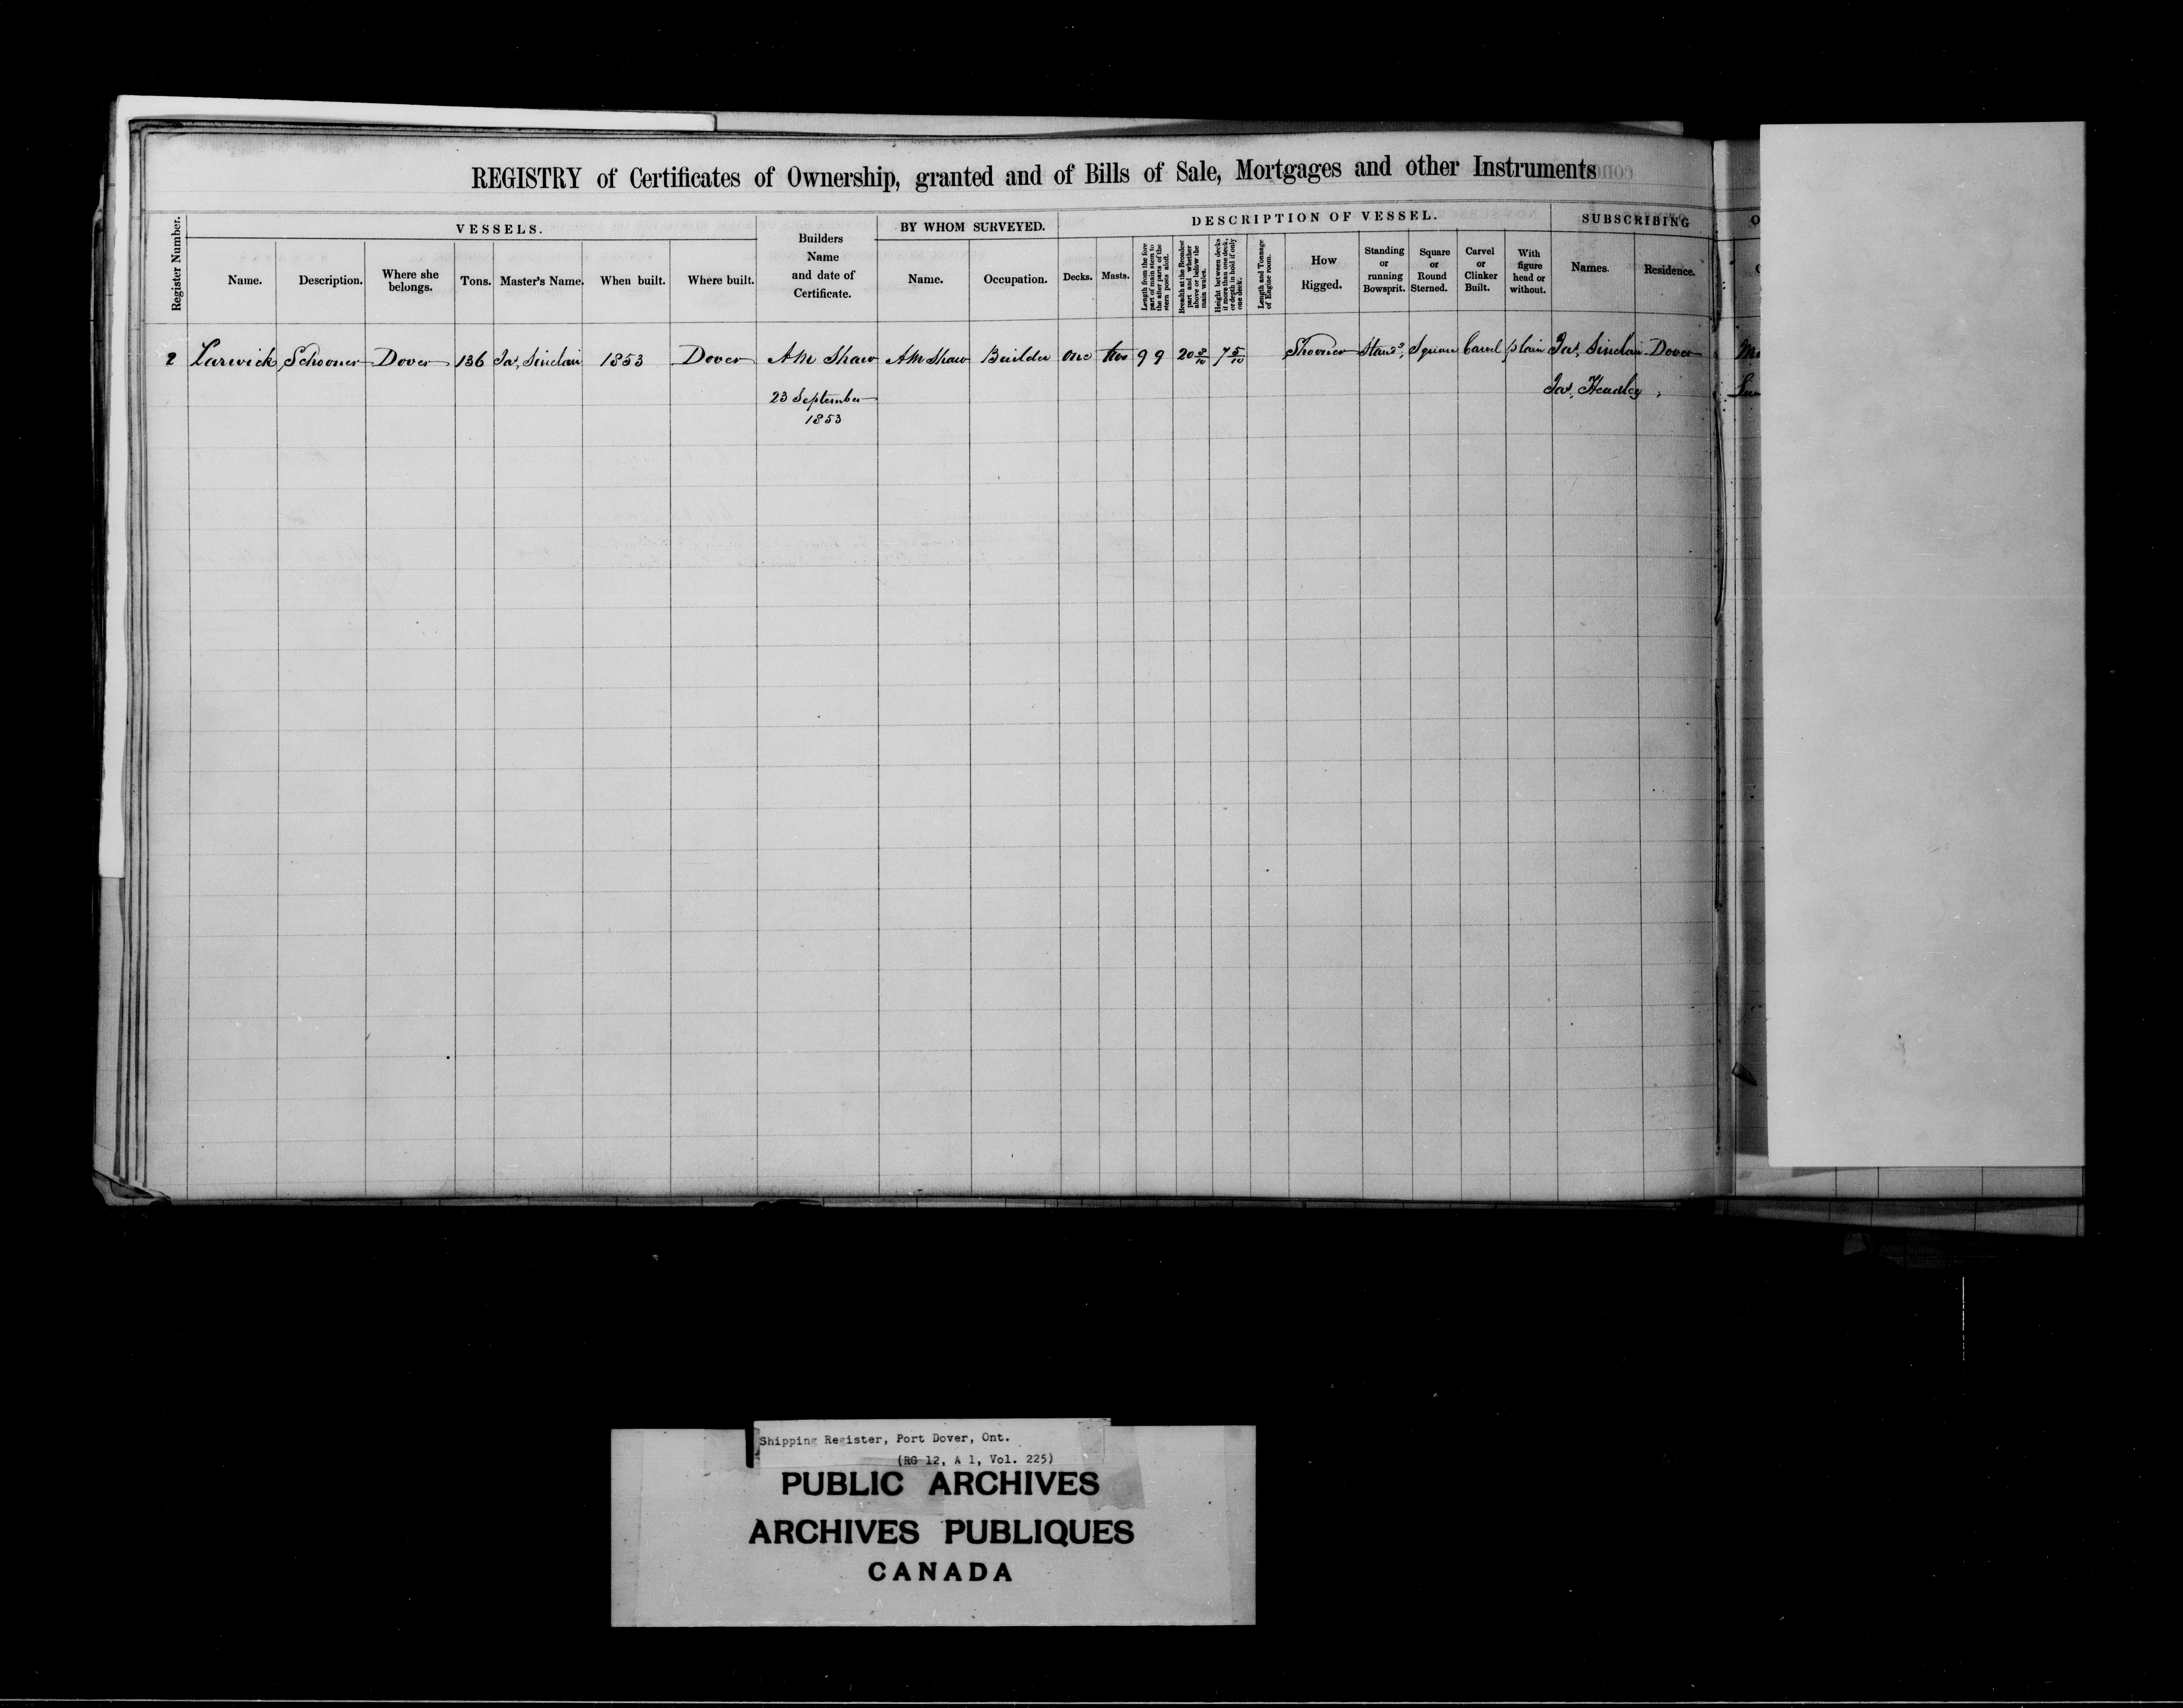 REGISTRY of Certificates of Ownership, granted and of Bills of Sale, Mortgages and other Instruments
Register Number.
VESSELS.
Name.
Description.
Where she belongs.
Tons.
Master's Name.
When built.
Where built.
Builders Name and date of Certificate.
BY WHOM SURVEYED.
Name.
Occupation.
DESCRIPTION OF VESSEL.
Decks.
Masts.
Length from the fore part of main stem to the after parts of the stern posts aloft.
Breadth at the Broadest part and whether above or below the main wales.
Height between decks if more than one deck, or depth in hold if only one deck.
Length and Tonnage of Engine room.
How Rigged.
Standing or running Bowsprit.
Square or Round Sterned.
Carvel or Clinker Built.
With figure head or without.
SUBSCRIBING
Names.
Residence.
2 Larwick Schooner Dover 136 Jas. Sinclair 1853 Dover A M Shaw A M Shaw Builder one two 99 20 8/10 7 5/10 Shooner Stand^g Square Carvel plain Jas. Sinclair Dover
23 September
1853
Jas. Headley "
Shipping Register, Port Dover, Ont.
(RG 12, A 1, Vol. 225)
PUBLIC ARCHIVES
ARCHIVES PUBLIQUES
CANADA